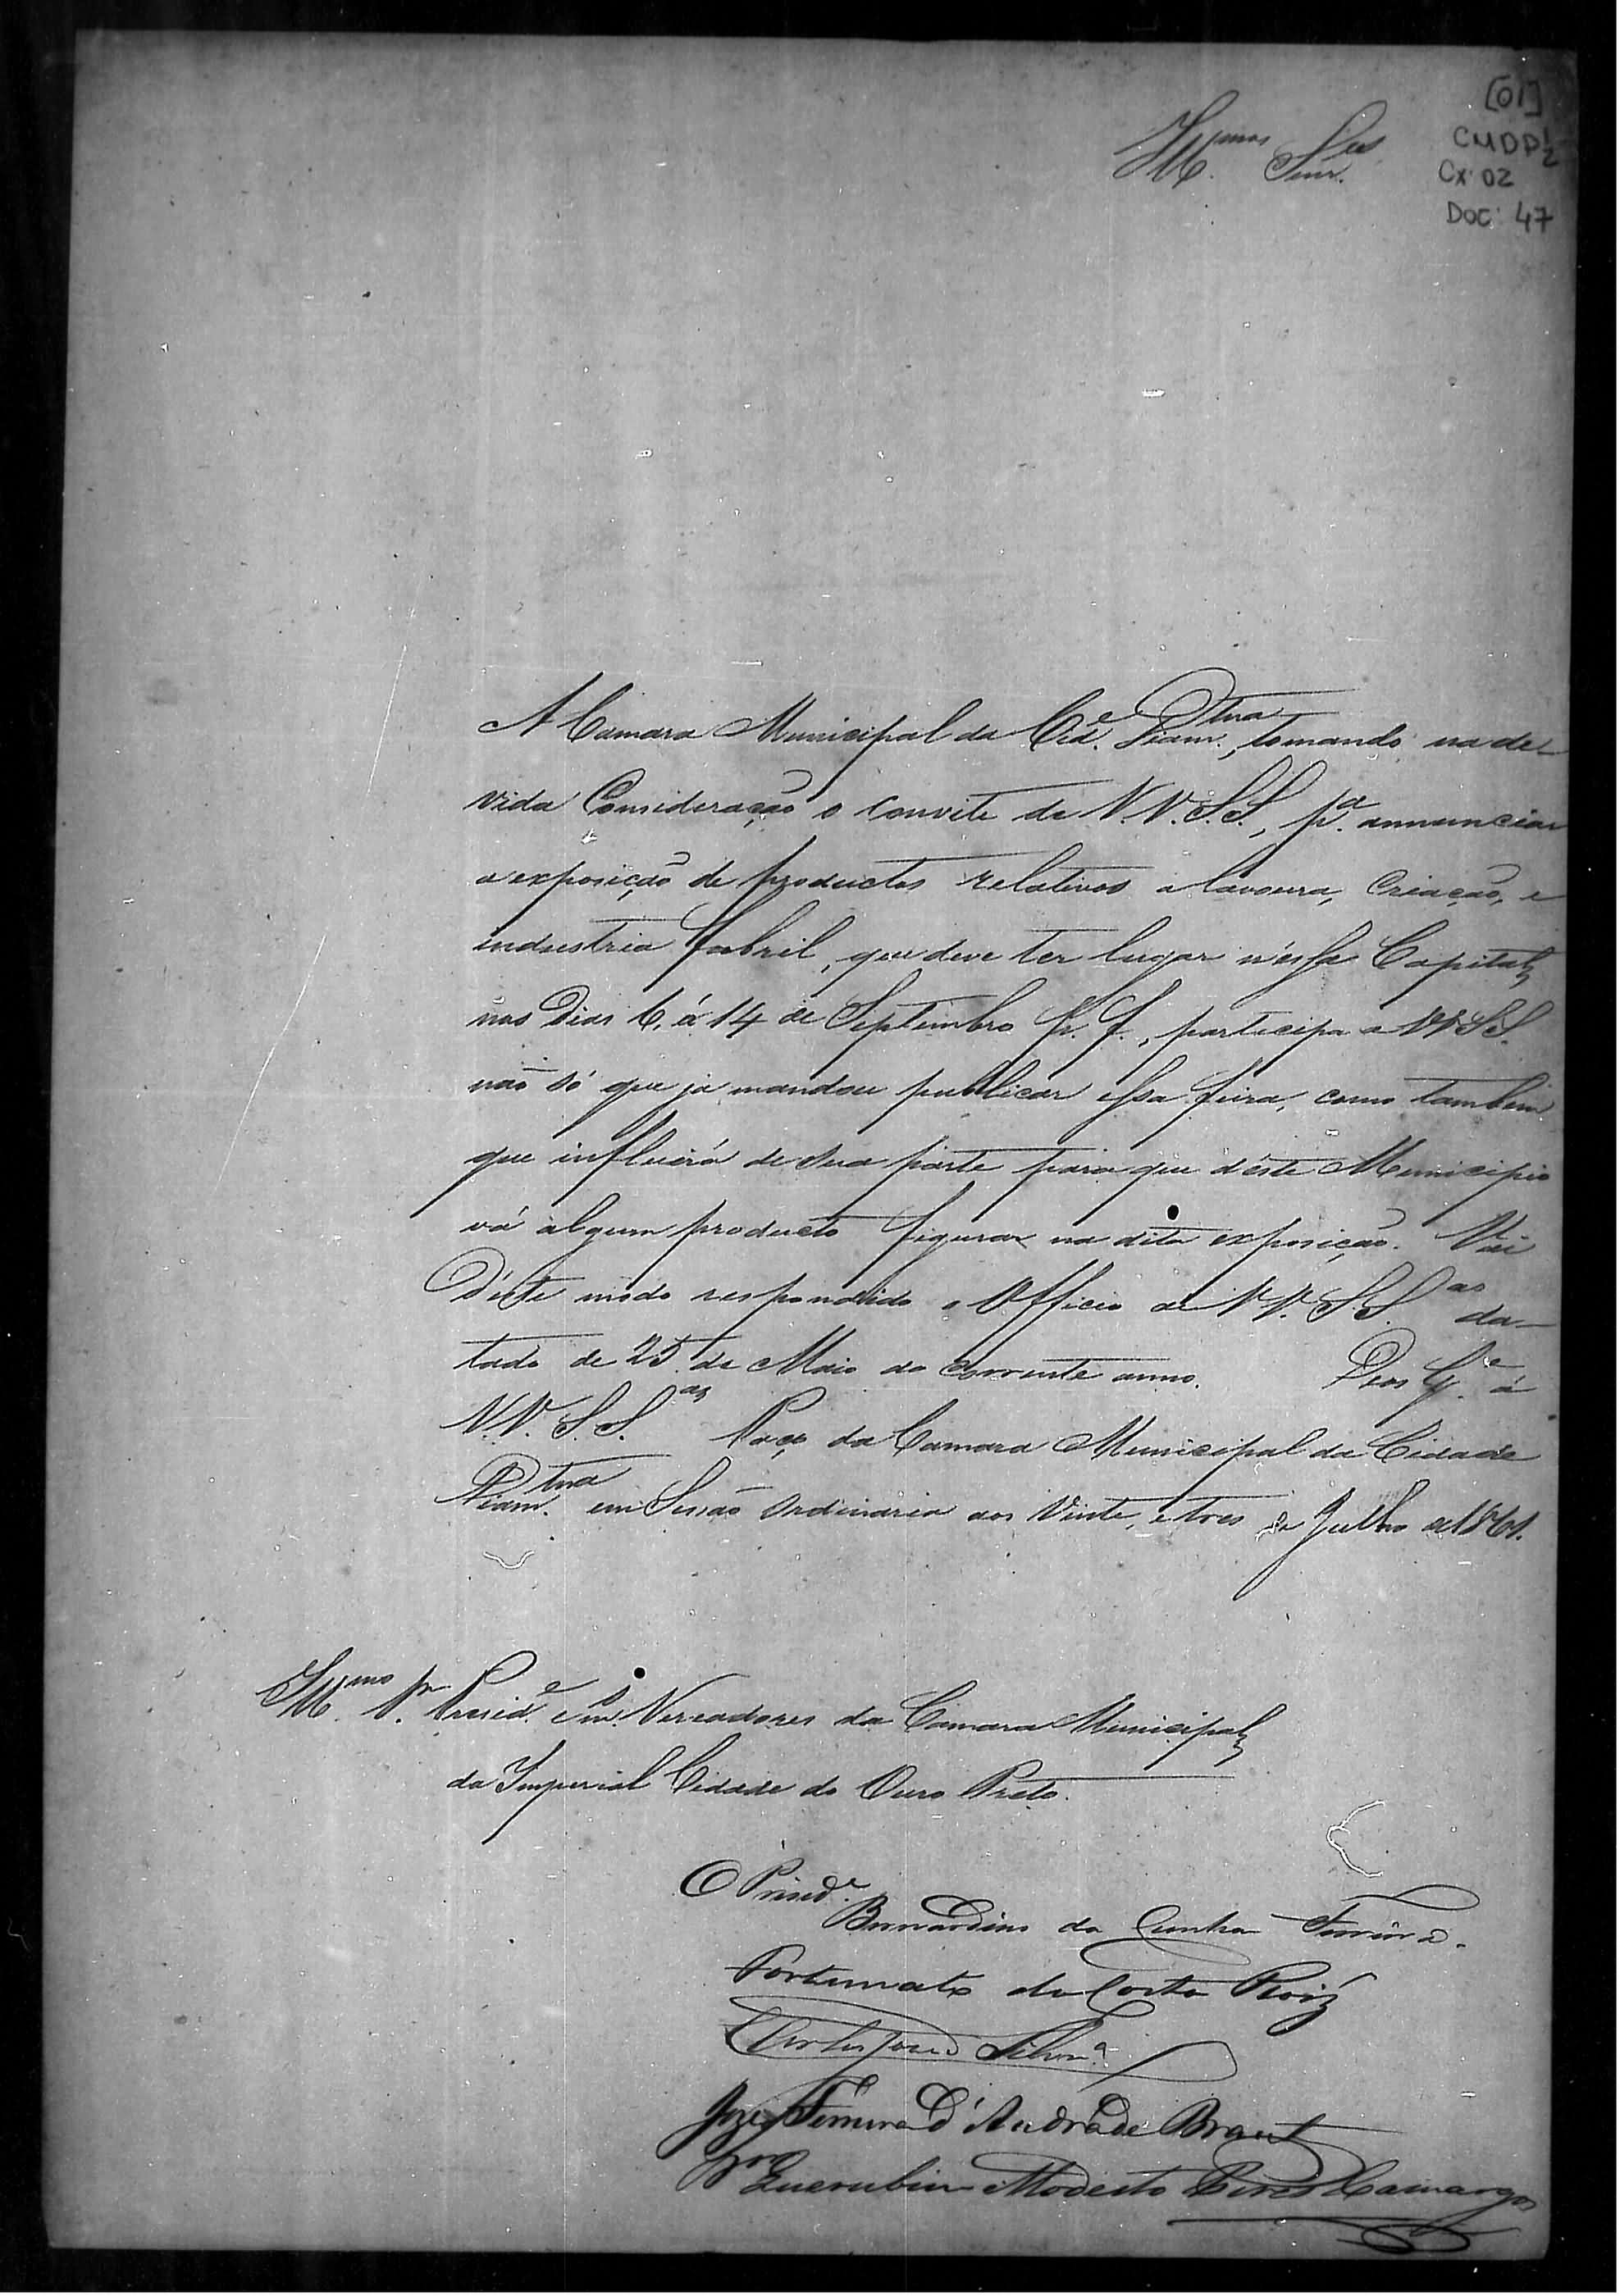 [01]
CMDP 1/2
Cx: 02
Doc: 47
Ill.mos Senr.es
A Camara Municipal da Cid.e Diam.tna, tomando na de-
vida Consideração o convite de V.V.S.S., p.a annunciar
a exposição de productos relativos a lavoura, Criação, e
industria fabril, que deve ter lugar n'essa Capital,
nos Dias 6, á 14 de Septembro p. f., participa a VVSS.
não só que ja mandou publicar essa feira, como tambem
que influirá de sua parte para que d'este Municipio
vá algum producto figurar na dita exposição. Vai
D'este modo respondido o Officio de V.V. S.S.as da-
tado de 25 de Maio do corrente anno. Deos G.e á
V.V. S.S.as Paço da Camara Municipal da Cidade
Diam.tna em Sessão Ordinaria aos Vinte, e tres de Julho de 1861.
Ill.mo Sr. Presid.e e Vereadores da Camara Municipal
da Imperial Cidade do Ouro Preto.
O Presid.e
Bernardino da Cunha Ferreira.
Fortunato da Costa Roiz
Silv.a
Joze Ferreira d'Andrade Brant
Querubim Modesto Pires Camargos